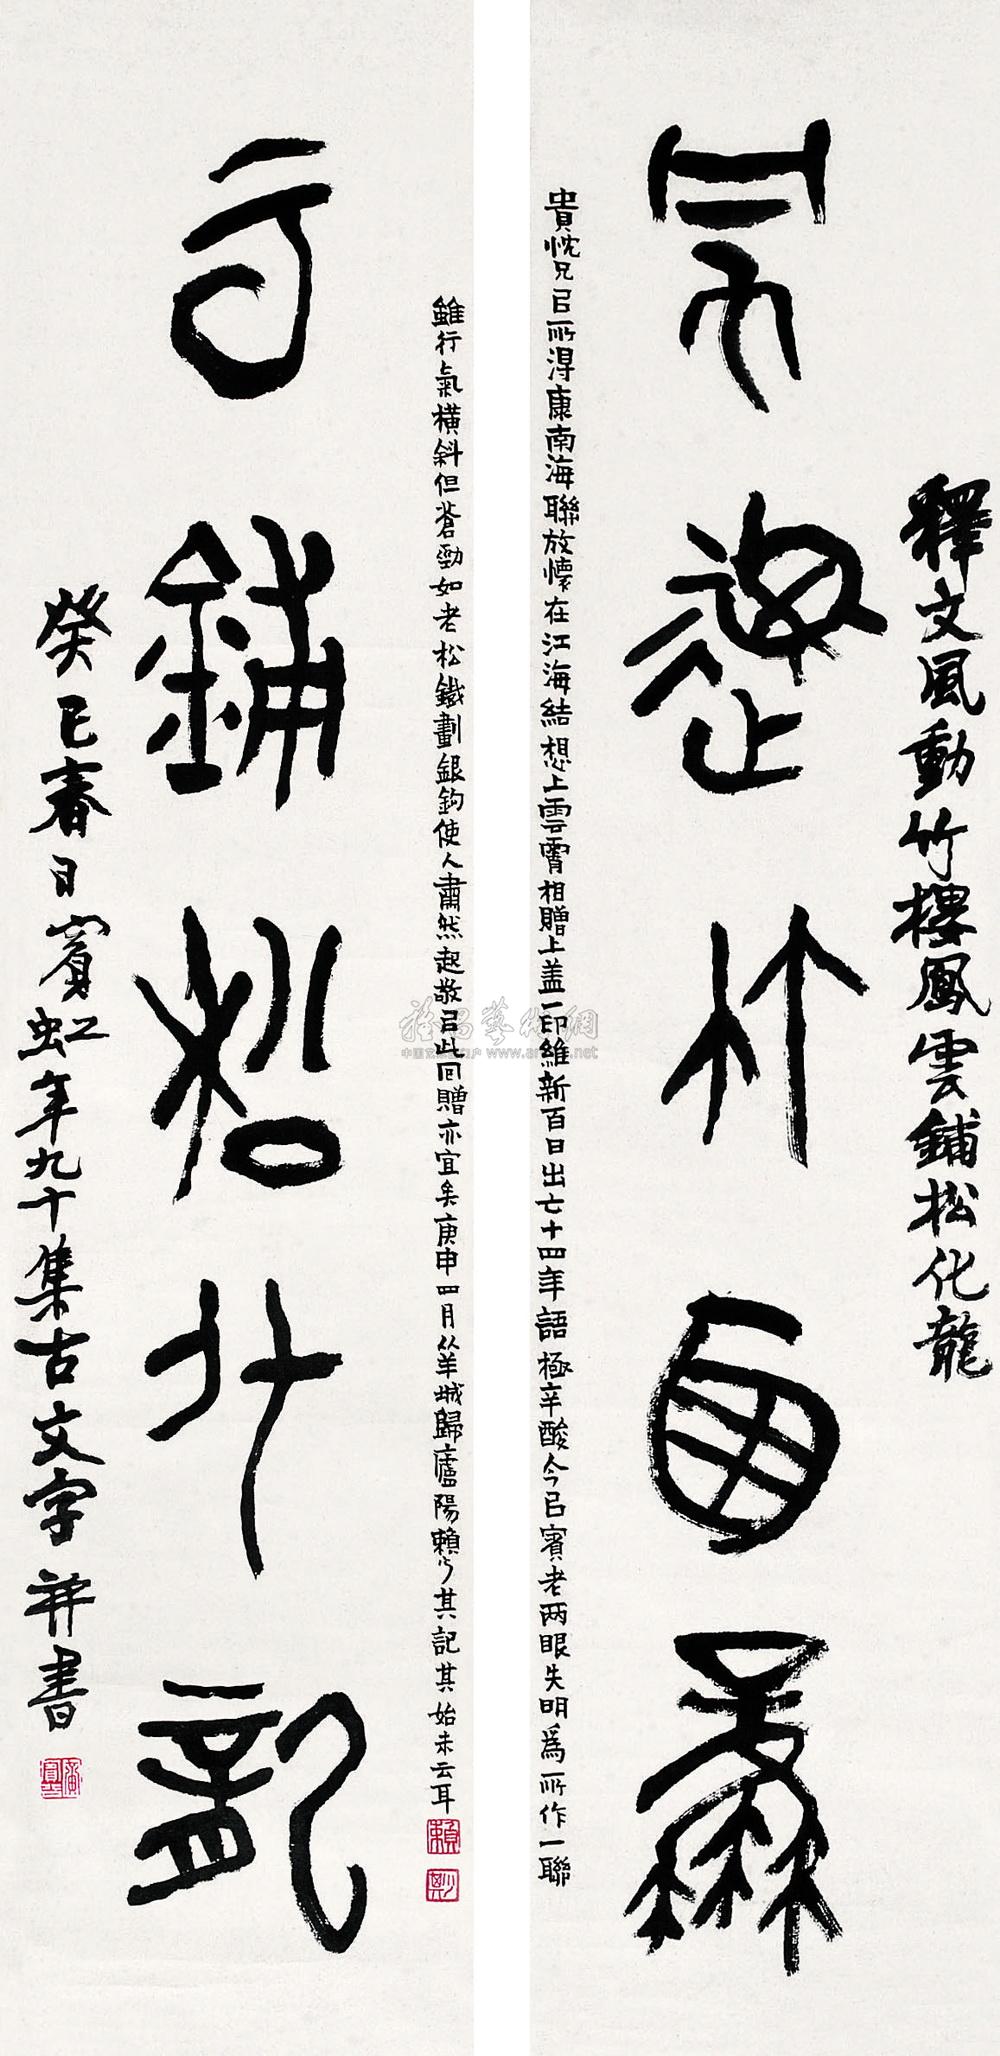 釋文風動竹樓鳳雲鋪松化龍
風動竹樓鳳
貴忱兄㠯所得康南海聯放懷在江海結想上雲霄相贈上蓋一印維新百日出亡十四年語極辛酸今㠯賓老两眼失明爲所作一聯
雖行氣橫斜但蒼勁如老松鐵劃銀鈎使人肅然起敬㠯此回贈亦宜矣庚申四月從羊城歸廬陽賴少其記其始末云耳
賴
少其
雲鋪松化龍
癸巳春日賓虹年九十集古文字并書
黃賓虹
www.ar.net